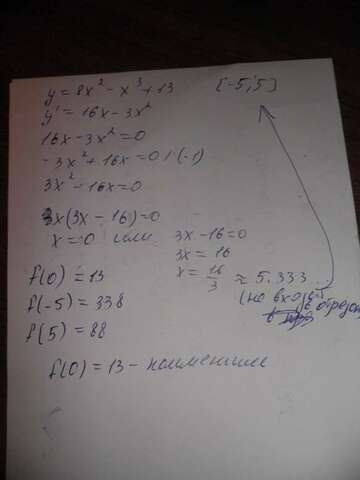 y = 8x² - x³ + 13 [-5; 5]
y' = 16x - 3x²
16x - 3x² = 0
-3x² + 16x = 0 | (-1)
3x² - 16x = 0
x(3x - 16) = 0
x = 0 или 3x - 16 = 0
3x = 16
x = 16/3 ≈ 5.333...
(не входит
в отрезок
f(0) = 13
f(-5) = 338
f(5) = 88
f(0) = 13 - наименьшее